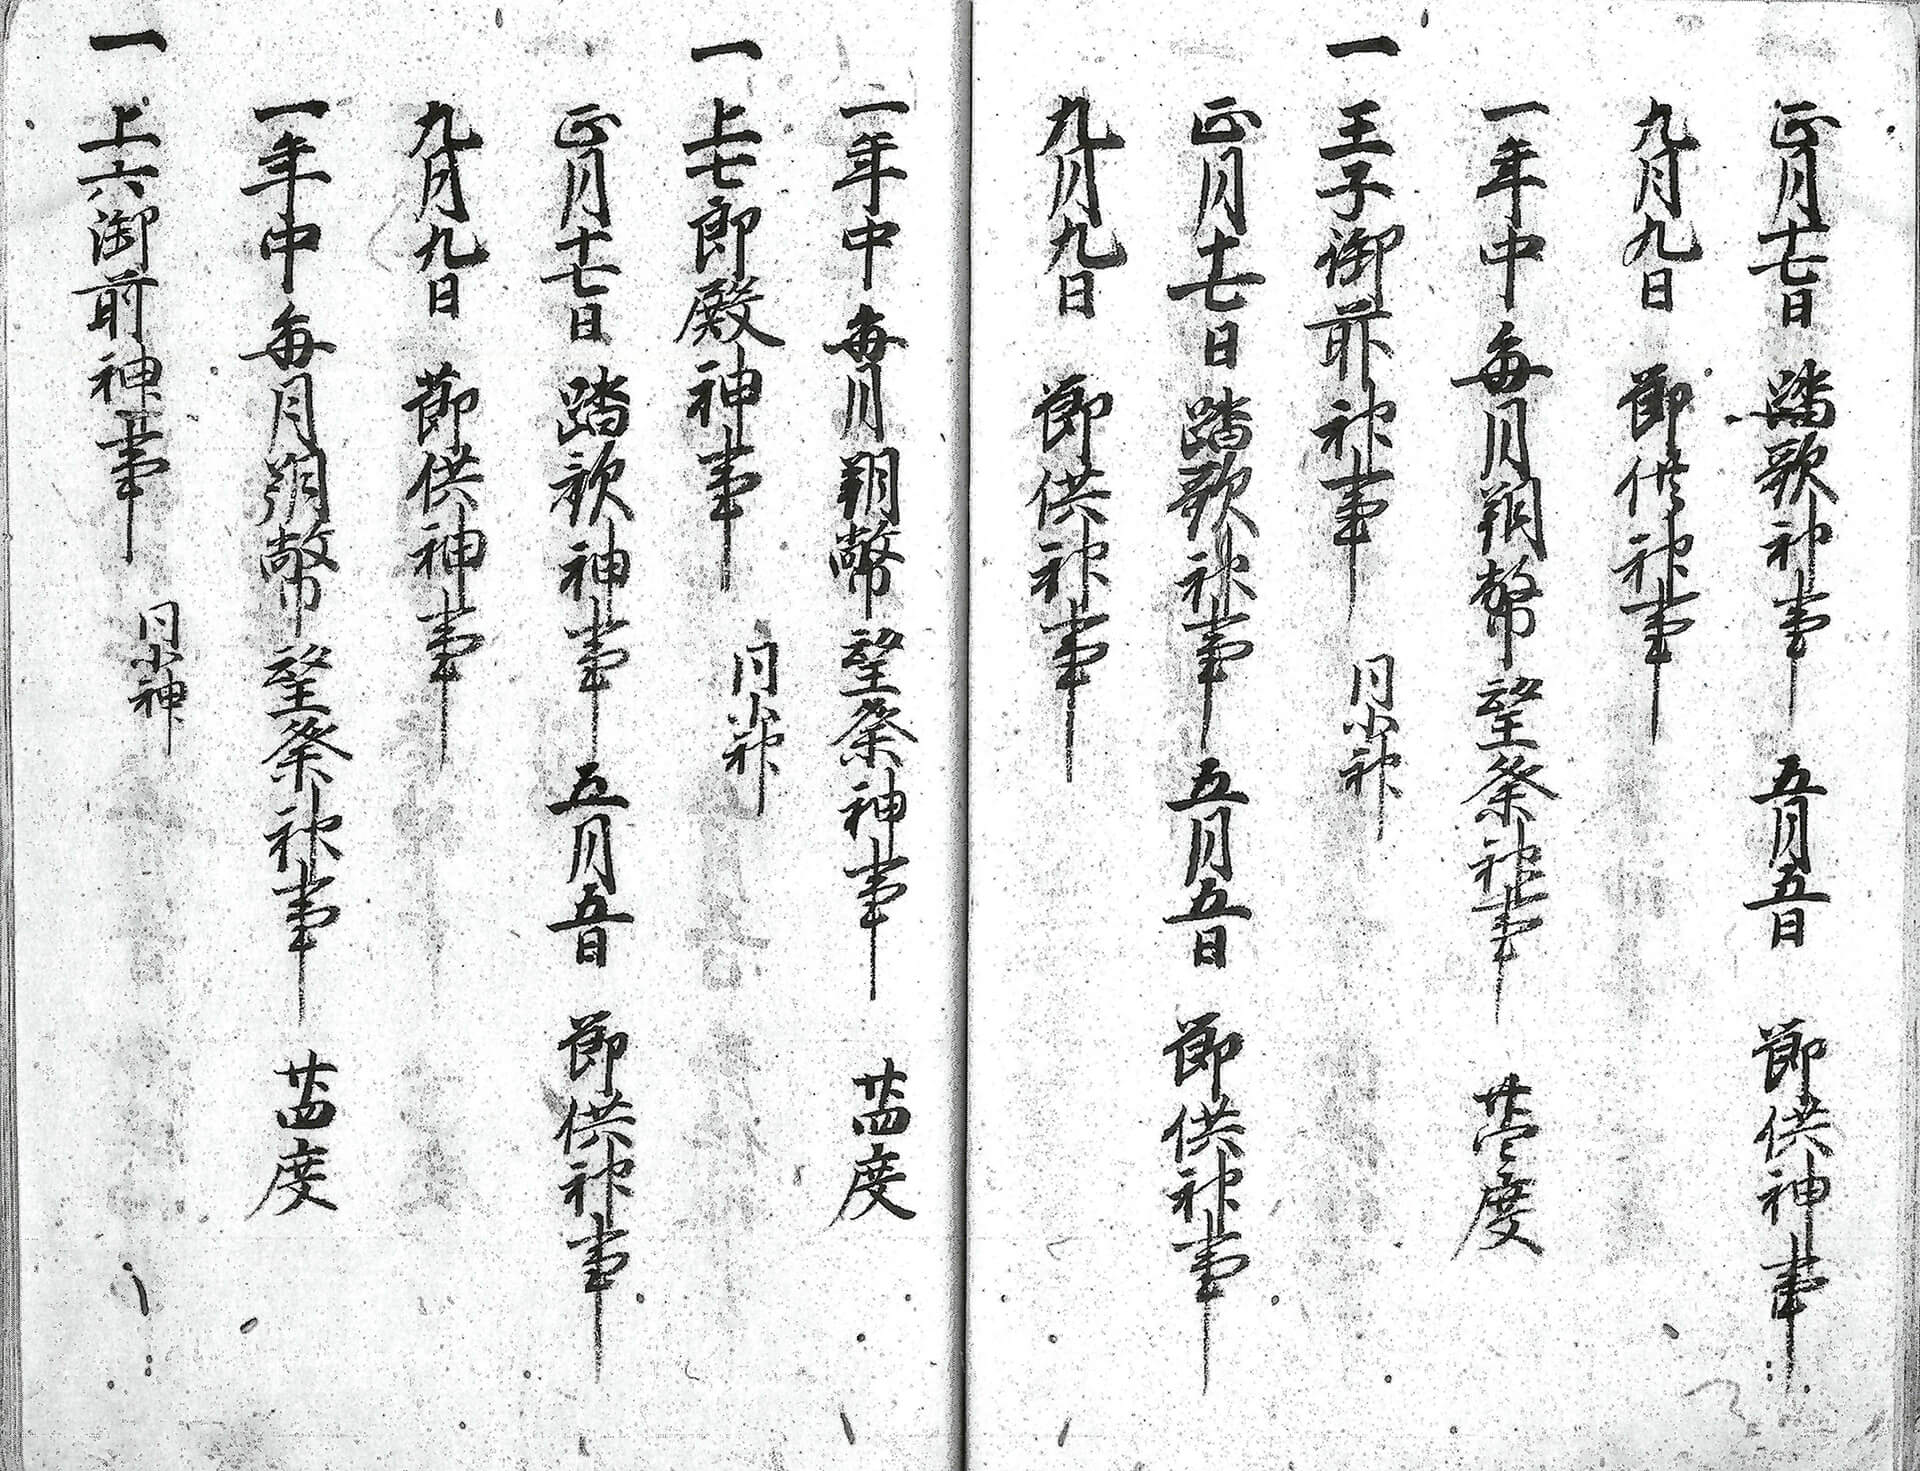 正月十七日 踏歌神事 五月五日 節供神事
九月九日 節供神事
一年中毎月朔幣望祭神事 廿四度
一 王子御前神事 同小神
正月十七日 踏歌神事 五月五日 節供神事
九月九日 節供神事
一年中毎月朔幣望祭神事 廿四度
一 上七郎殿神事 同小神
正月十七日 踏歌神事 五月五日 節供神事
九月九日 節供神事
一年中毎月朔幣望祭神事 廿四度
一 上六御前神事 同小神